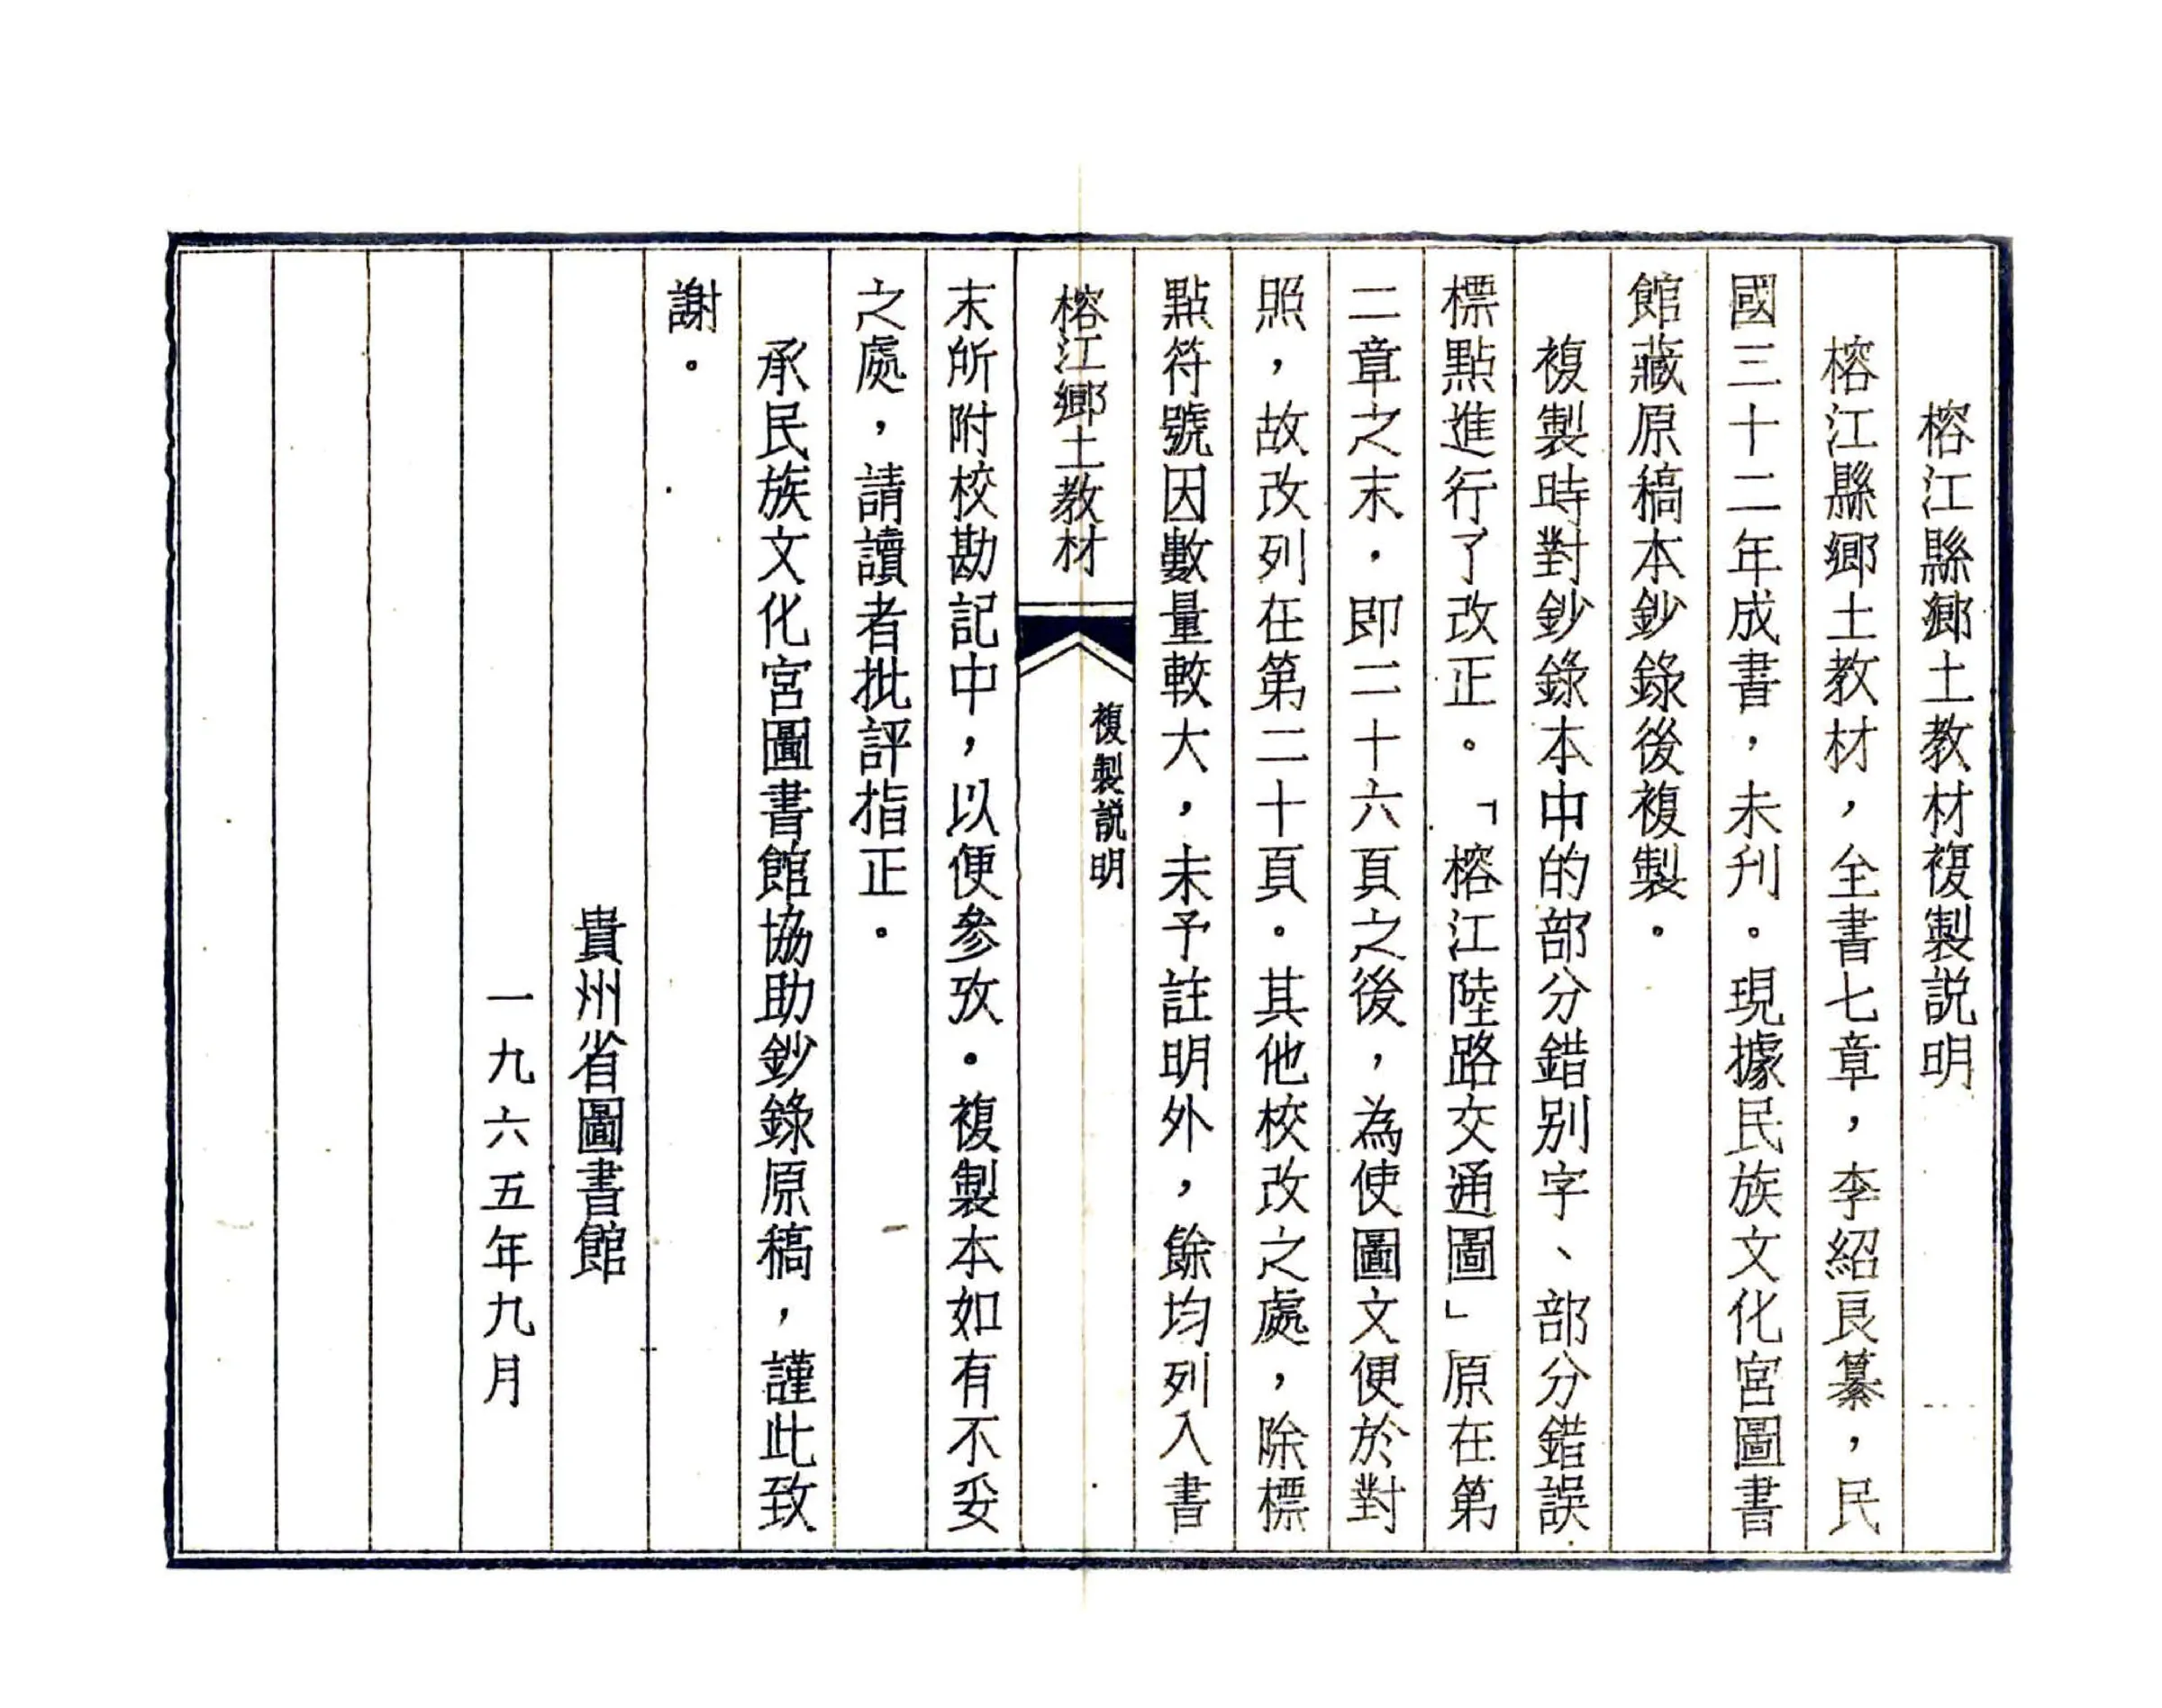 榕江縣鄉土教材複製説明
榕江縣鄉土教材，全書七章，李紹良纂，民
國三十二年成書，未刋。現據民族文化宮圖書
館藏原稿本鈔錄後複製。
複製時對鈔錄本中的部分錯别字、部分錯誤
標點進行了改正。「榕江陸路交通圖」原在第
二章之末，即二十六頁之後，為使圖文便於對
照，故改列在第二十頁。其他校改之處，除標
點符號因數量較大，未予註明外，餘均列入書
榕江鄉土教材
複製説明
末所附校勘記中，以便參攷。複製本如有不妥
之處，請讀者批評指正。
承民族文化宮圖書館協助鈔錄原稿，謹此致
謝。
貴州省圖書館
一九六五年九月